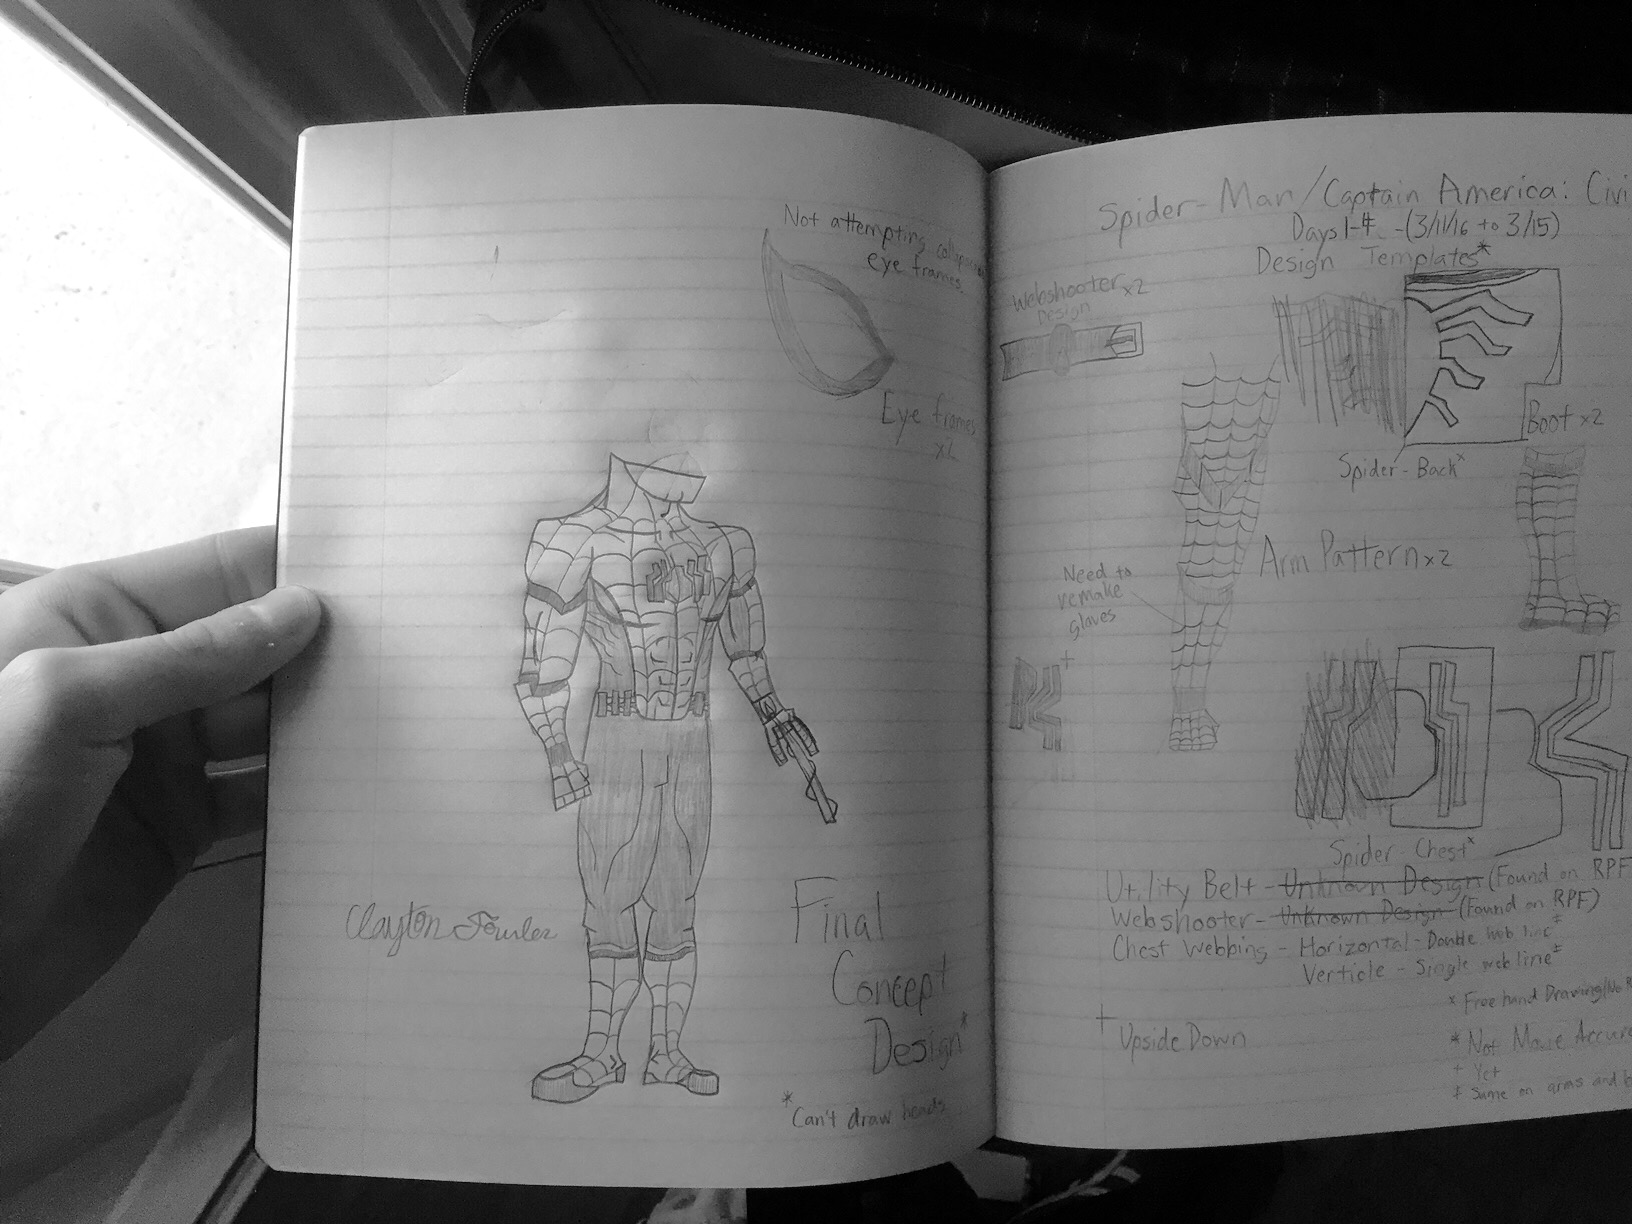 Not attempting
eye frames.
Eye frames
x2
Clayton Fowler
Final
Concept
Design*
*Can't draw heads
Spider-Man/Captain America: Civi
Days 1-4 -(3/11/16 to 3/15)
Design Templates*
Webshooter x2
Design
Spider-Back ˣ
Boot x2
Arm Pattern x2
Need to
remake
gloves
+
Spider-Chest ˣ
Utility Belt - Unknown Design (Found on RPF
Webshooter - Unknown Design (Found on RPF)
Chest Webbing - Horizontal - Double web line ‡
Verticle - Single web line ‡
+ Upside Down
ˣ Free hand Drawing/No R
* Not Movie Accura
+ Yet
‡ Same on arms and b